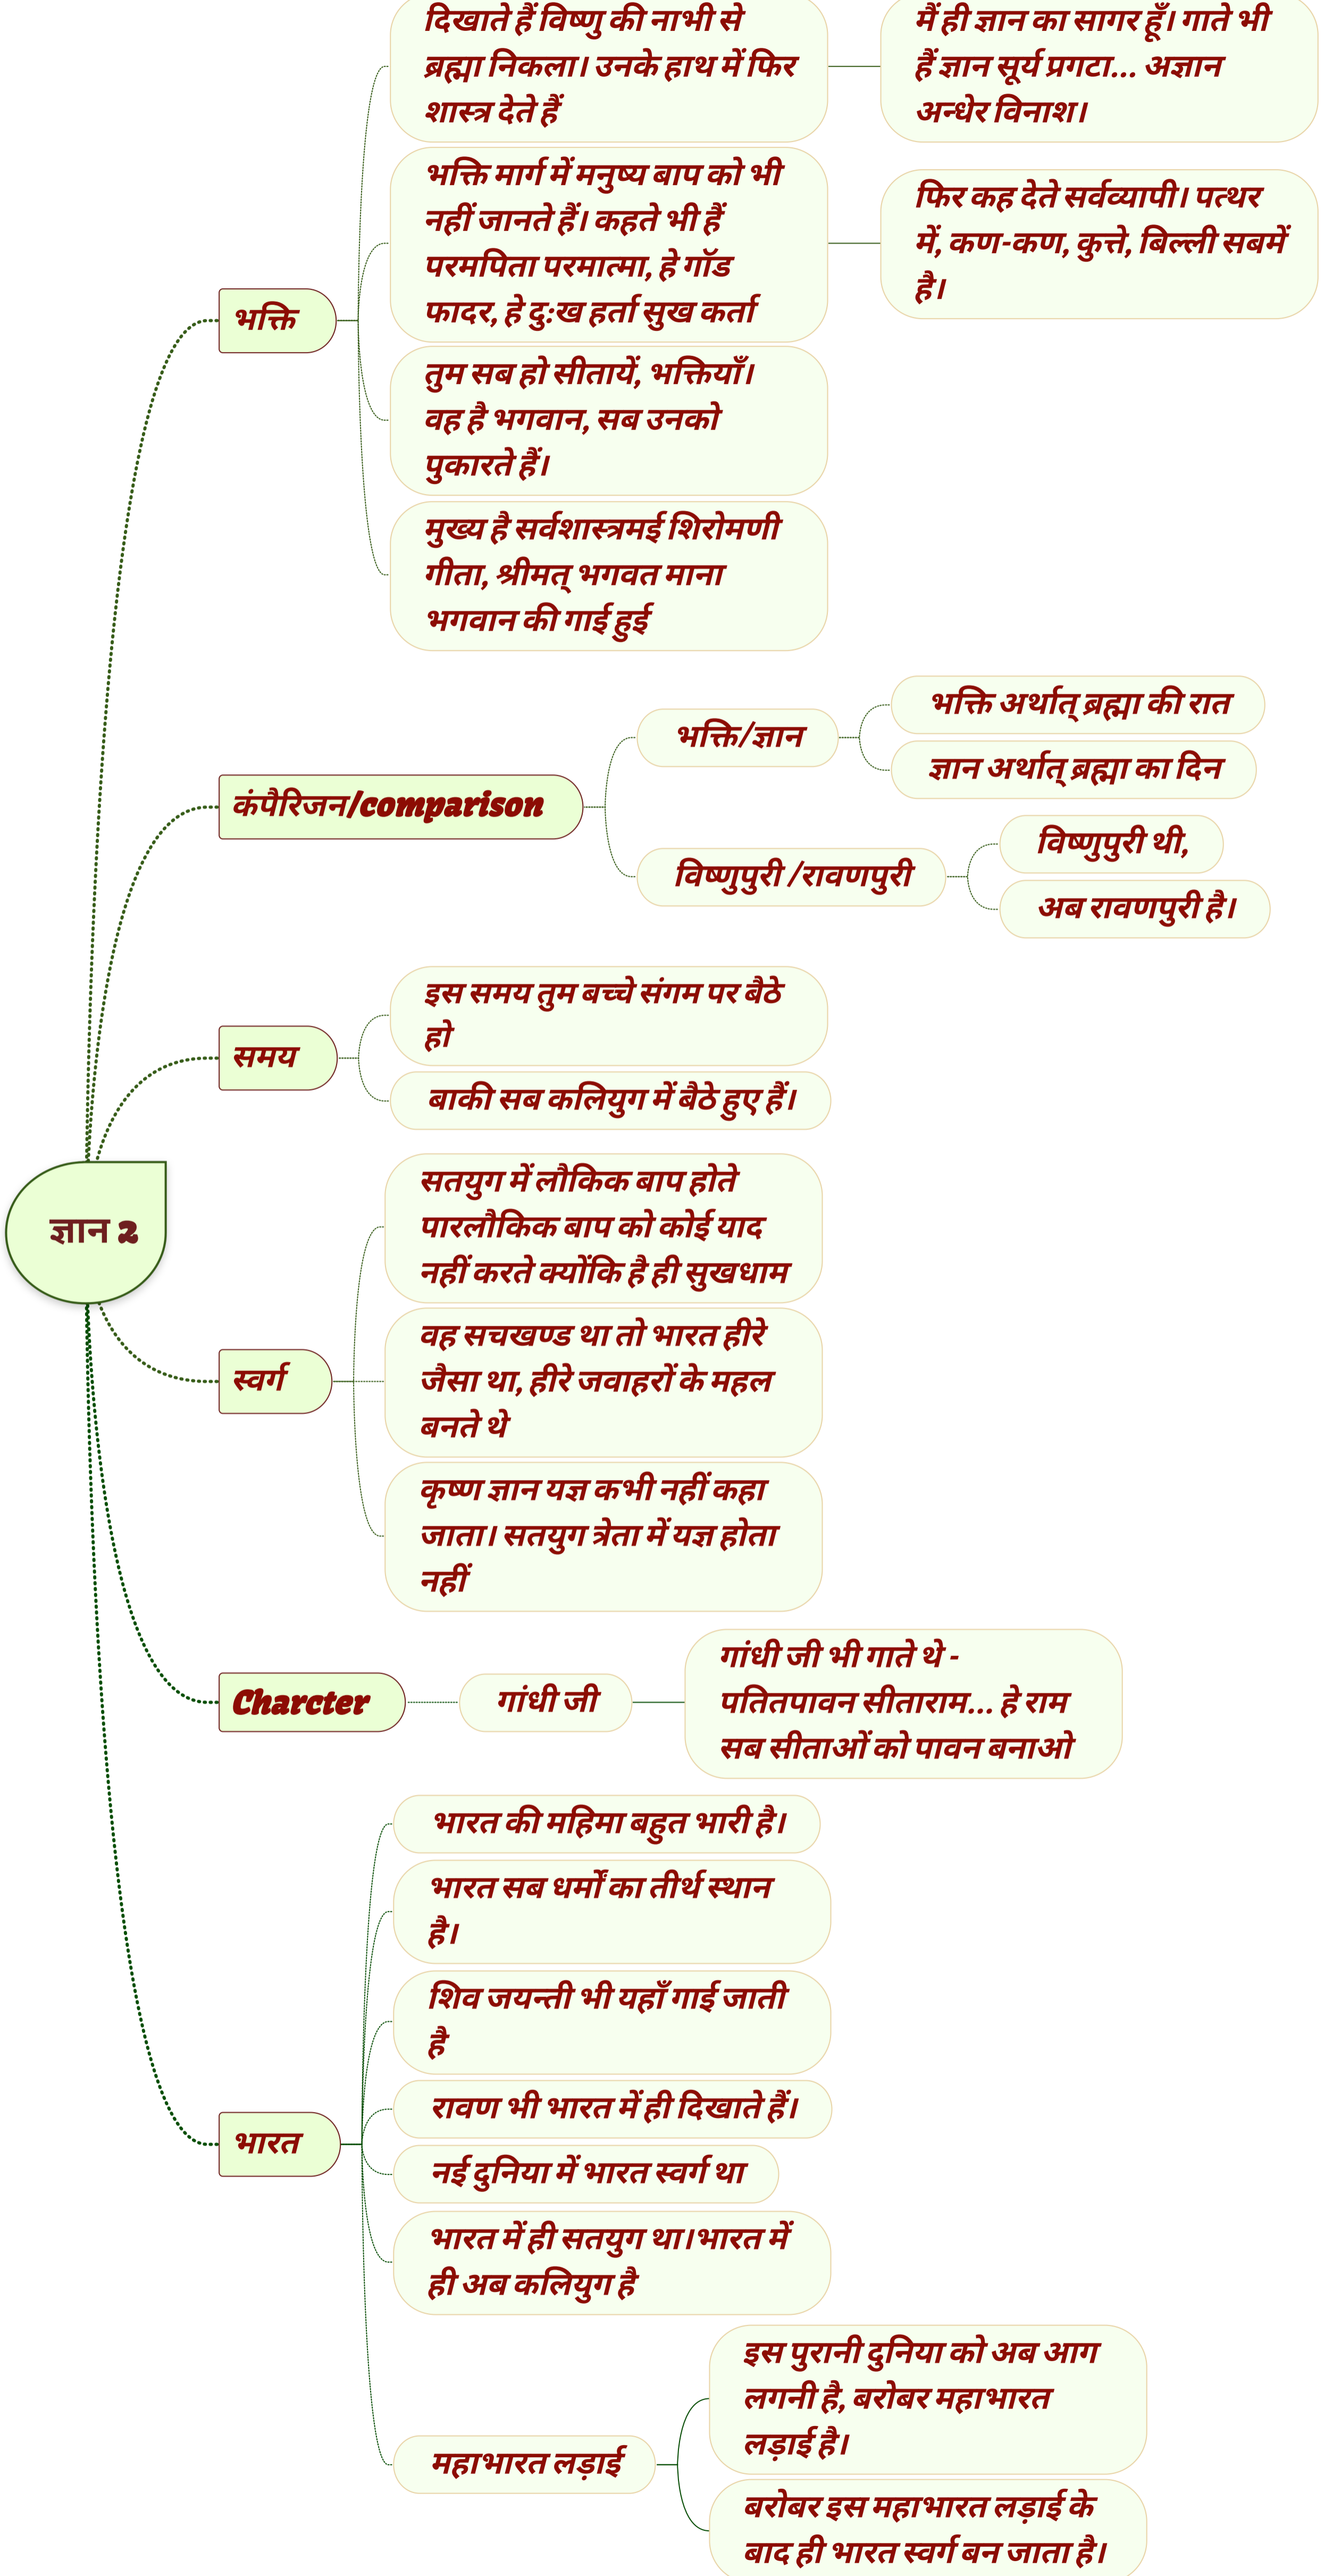 दिखाते हैं विष्णु की नाभी से
ब्रह्मा निकला। उनके हाथ में फिर
शास्त्र देते हैं
मैं ही ज्ञान का सागर हूँ। गाते भी
हैं ज्ञान सूर्य प्रगटा... अज्ञान
अन्धेर विनाश।
भक्ति मार्ग में मनुष्य बाप को भी
नहीं जानते हैं। कहते भी हैं
परमपिता परमात्मा, हे गॉड
फादर, हे दु:ख हर्ता सुख कर्ता
फिर कह देते सर्वव्यापी। पत्थर
में, कण-कण, कुत्ते, बिल्ली सबमें
है।
भक्ति
तुम सब हो सीतायें, भक्तियाँ।
वह है भगवान, सब उनको
पुकारते हैं।
मुख्य है सर्वशास्त्रमई शिरोमणी
गीता, श्रीमत् भगवत माना
भगवान की गाई हुई
कंपैरिजन/comparison
भक्ति/ज्ञान
भक्ति अर्थात् ब्रह्मा की रात
ज्ञान अर्थात् ब्रह्मा का दिन
विष्णुपुरी /रावणपुरी
विष्णुपुरी थी,
अब रावणपुरी है।
समय
इस समय तुम बच्चे संगम पर बैठे
हो
बाकी सब कलियुग में बैठे हुए हैं।
ज्ञान 2
स्वर्ग
सतयुग में लौकिक बाप होते
पारलौकिक बाप को कोई याद
नहीं करते क्योंकि है ही सुखधाम
वह सचखण्ड था तो भारत हीरे
जैसा था, हीरे जवाहरों के महल
बनते थे
कृष्ण ज्ञान यज्ञ कभी नहीं कहा
जाता। सतयुग त्रेता में यज्ञ होता
नहीं
Charcter
गांधी जी
गांधी जी भी गाते थे -
पतितपावन सीताराम... हे राम
सब सीताओं को पावन बनाओ
भारत
भारत की महिमा बहुत भारी है।
भारत सब धर्मों का तीर्थ स्थान
है।
शिव जयन्ती भी यहाँ गाई जाती
है
रावण भी भारत में ही दिखाते हैं।
नई दुनिया में भारत स्वर्ग था
भारत में ही सतयुग था।भारत में
ही अब कलियुग है
महाभारत लड़ाई
इस पुरानी दुनिया को अब आग
लगनी है, बरोबर महाभारत
लड़ाई है।
बरोबर इस महाभारत लड़ाई के
बाद ही भारत स्वर्ग बन जाता है।